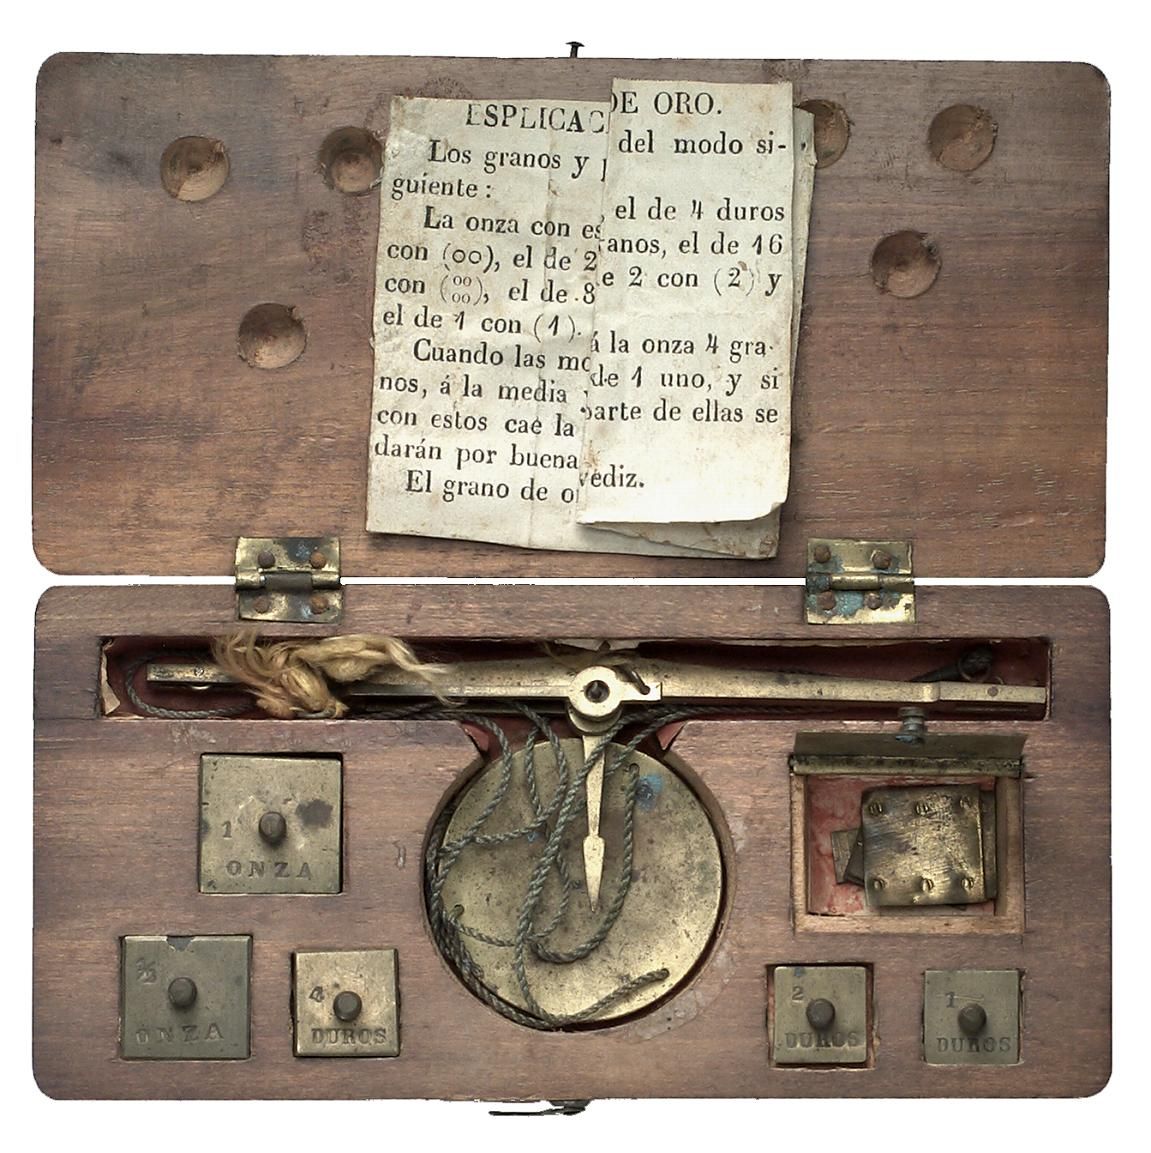 ESPLICAC DE ORO.
Los granos y del modo si-
guiente:
La onza con es el de 4 duros
con (oo), el de 2 anos, el de 16
con (oo oo), el de 8 e 2 con (2) y
el de 1 con (1).
Cuando las mo á la onza 4 gra-
nos, á la media de 1 uno, y si
con estos cae la parte de ellas se
darán por buena
El grano de o vediz.
1
ONZA
½
ONZA
4
DUROS
2
DUROS
1
DUROS